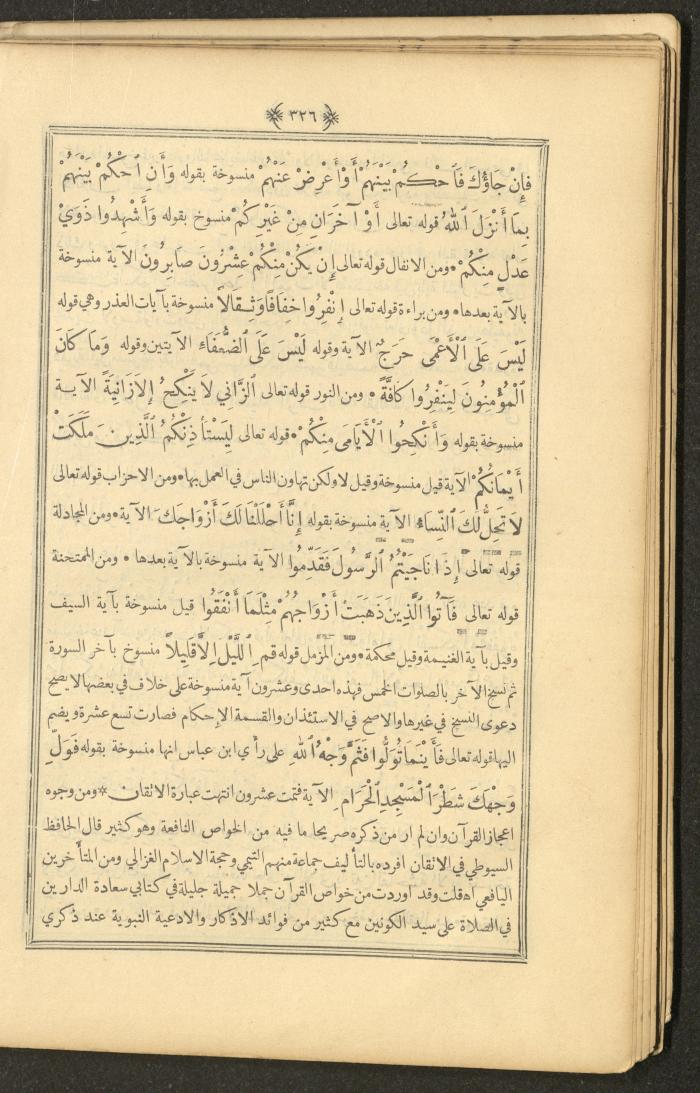 ﴿ ٣٢٦ ﴾
فَإِنْ جَاؤُكَ فَاحْكُمْ بَيْنَهُمْ أَوْ أَعْرِضْ عَنْهُمْ منسوخة بقوله وَأَنِ ٱحْكُمْ بَيْنَهُمْ
بِمَا أَنْزَلَ ٱللهُ قوله تعالى أَوْ آخَرَانِ مِنْ غَيْرِكُمْ منسوخ بقوله وَأَشْهِدُوا ذَوَيْ
عَدْلٍ مِنْكُمْ * ومن الانفال قوله تعالى إِنْ يَكُنْ مِنْكُمْ عِشْرُونَ صَابِرُونَ الآية منسوخة
بالآية بعدها * ومن براءة قوله تعالى إِنْفِرُوا خِفَافًا وَثِقَالاً منسوخة بآيات العذر وهي قوله
لَيْسَ عَلَى ٱلْأَعْمَى حَرَجٌ الآية وقوله لَيْسَ عَلَى ٱلضُّعَفَاءِ الآيتين وقوله وَمَا كَانَ
ٱلْمُؤْمِنُونَ لِيَنْفِرُوا كَافَّةً * ومن النور قوله تعالى ٱلزَّانِي لاَ يَنْكِحُ إِلاَّ زَانِيَةً الآيـة
منسوخة بقوله وَأَنْكِحُوا ٱلْأَيَامَى مِنْكُمْ * قوله تعالى لِيَسْتَأْذِنْكُمُ ٱلَّذِينَ مَلَكَتْ
أَيْمَانُكُمْ الآية قيل منسوخة وقيل لا ولكن تهاون الناس في العمل بها * ومن الاحزاب قوله تعالى
لاَ تَحِلُّ لَكَ ٱلنِّسَاءُ الآية منسوخة بقوله إِنَّا أَحْلَلْنَا لَكَ أَزْوَاجَكَ الآية * ومن المجادلة
قوله تعالى إِذَا نَاجَيْتُمُ ٱلرَّسُولَ فَقَدِّمُوا الآية منسوخة بالآية بعدها * ومن الممتحنة
قوله تعالى فَآتُوا ٱلَّذِينَ ذَهَبَتْ أَزْوَاجُهُمْ مِثْلَمَا أَنْفَقُوا قيل منسوخة بآية السيف
وقيل بآية الغنيمة وقيل محكمة * ومن المزمل قوله قمِ ٱللَّيْلَ إِلاَّ قَلِيلاً منسوخ بآخر السورة
ثم نسخ الآخر بالصلوات الخمس فهذه احدى وعشرون آية منسوخة على خلاف في بعضها لا يصح
دعوى النسخ في غيرها والاصح في الاستئذان والقسمة الإحكام فصارت تسع عشرة ويضم
اليها قوله تعالى فَأَيْنَمَا تُوَلُّوا فَثَمَّ وَجْهُ ٱللهِ على رأي ابن عباس انها منسوخة بقوله فَوَلِّ
وَجْهَكَ شَطْرَ ٱلْمَسْجِدِ ٱلْحَرَامِ الآية فتمت عشرون انتهت عبارة الاتقان * ومن وجوه
اعجاز القرآن وان لم ار من ذكره صريحا ما فيه من الخواص النافعة وهو كثير قال الحافظ
السيوطي في الاتقان افرده بالتأليف جماعة منهم التيمي وحجة الاسلام الغزالي ومن المتأخرين
اليافعي اه قلت وقد اوردت من خواص القرآن جملا جميلة جليلة في كتابي سعادة الدارين
في الصلاة على سيد الكونين مع كثير من فوائد الاذكار والادعية النبوية عند ذكري